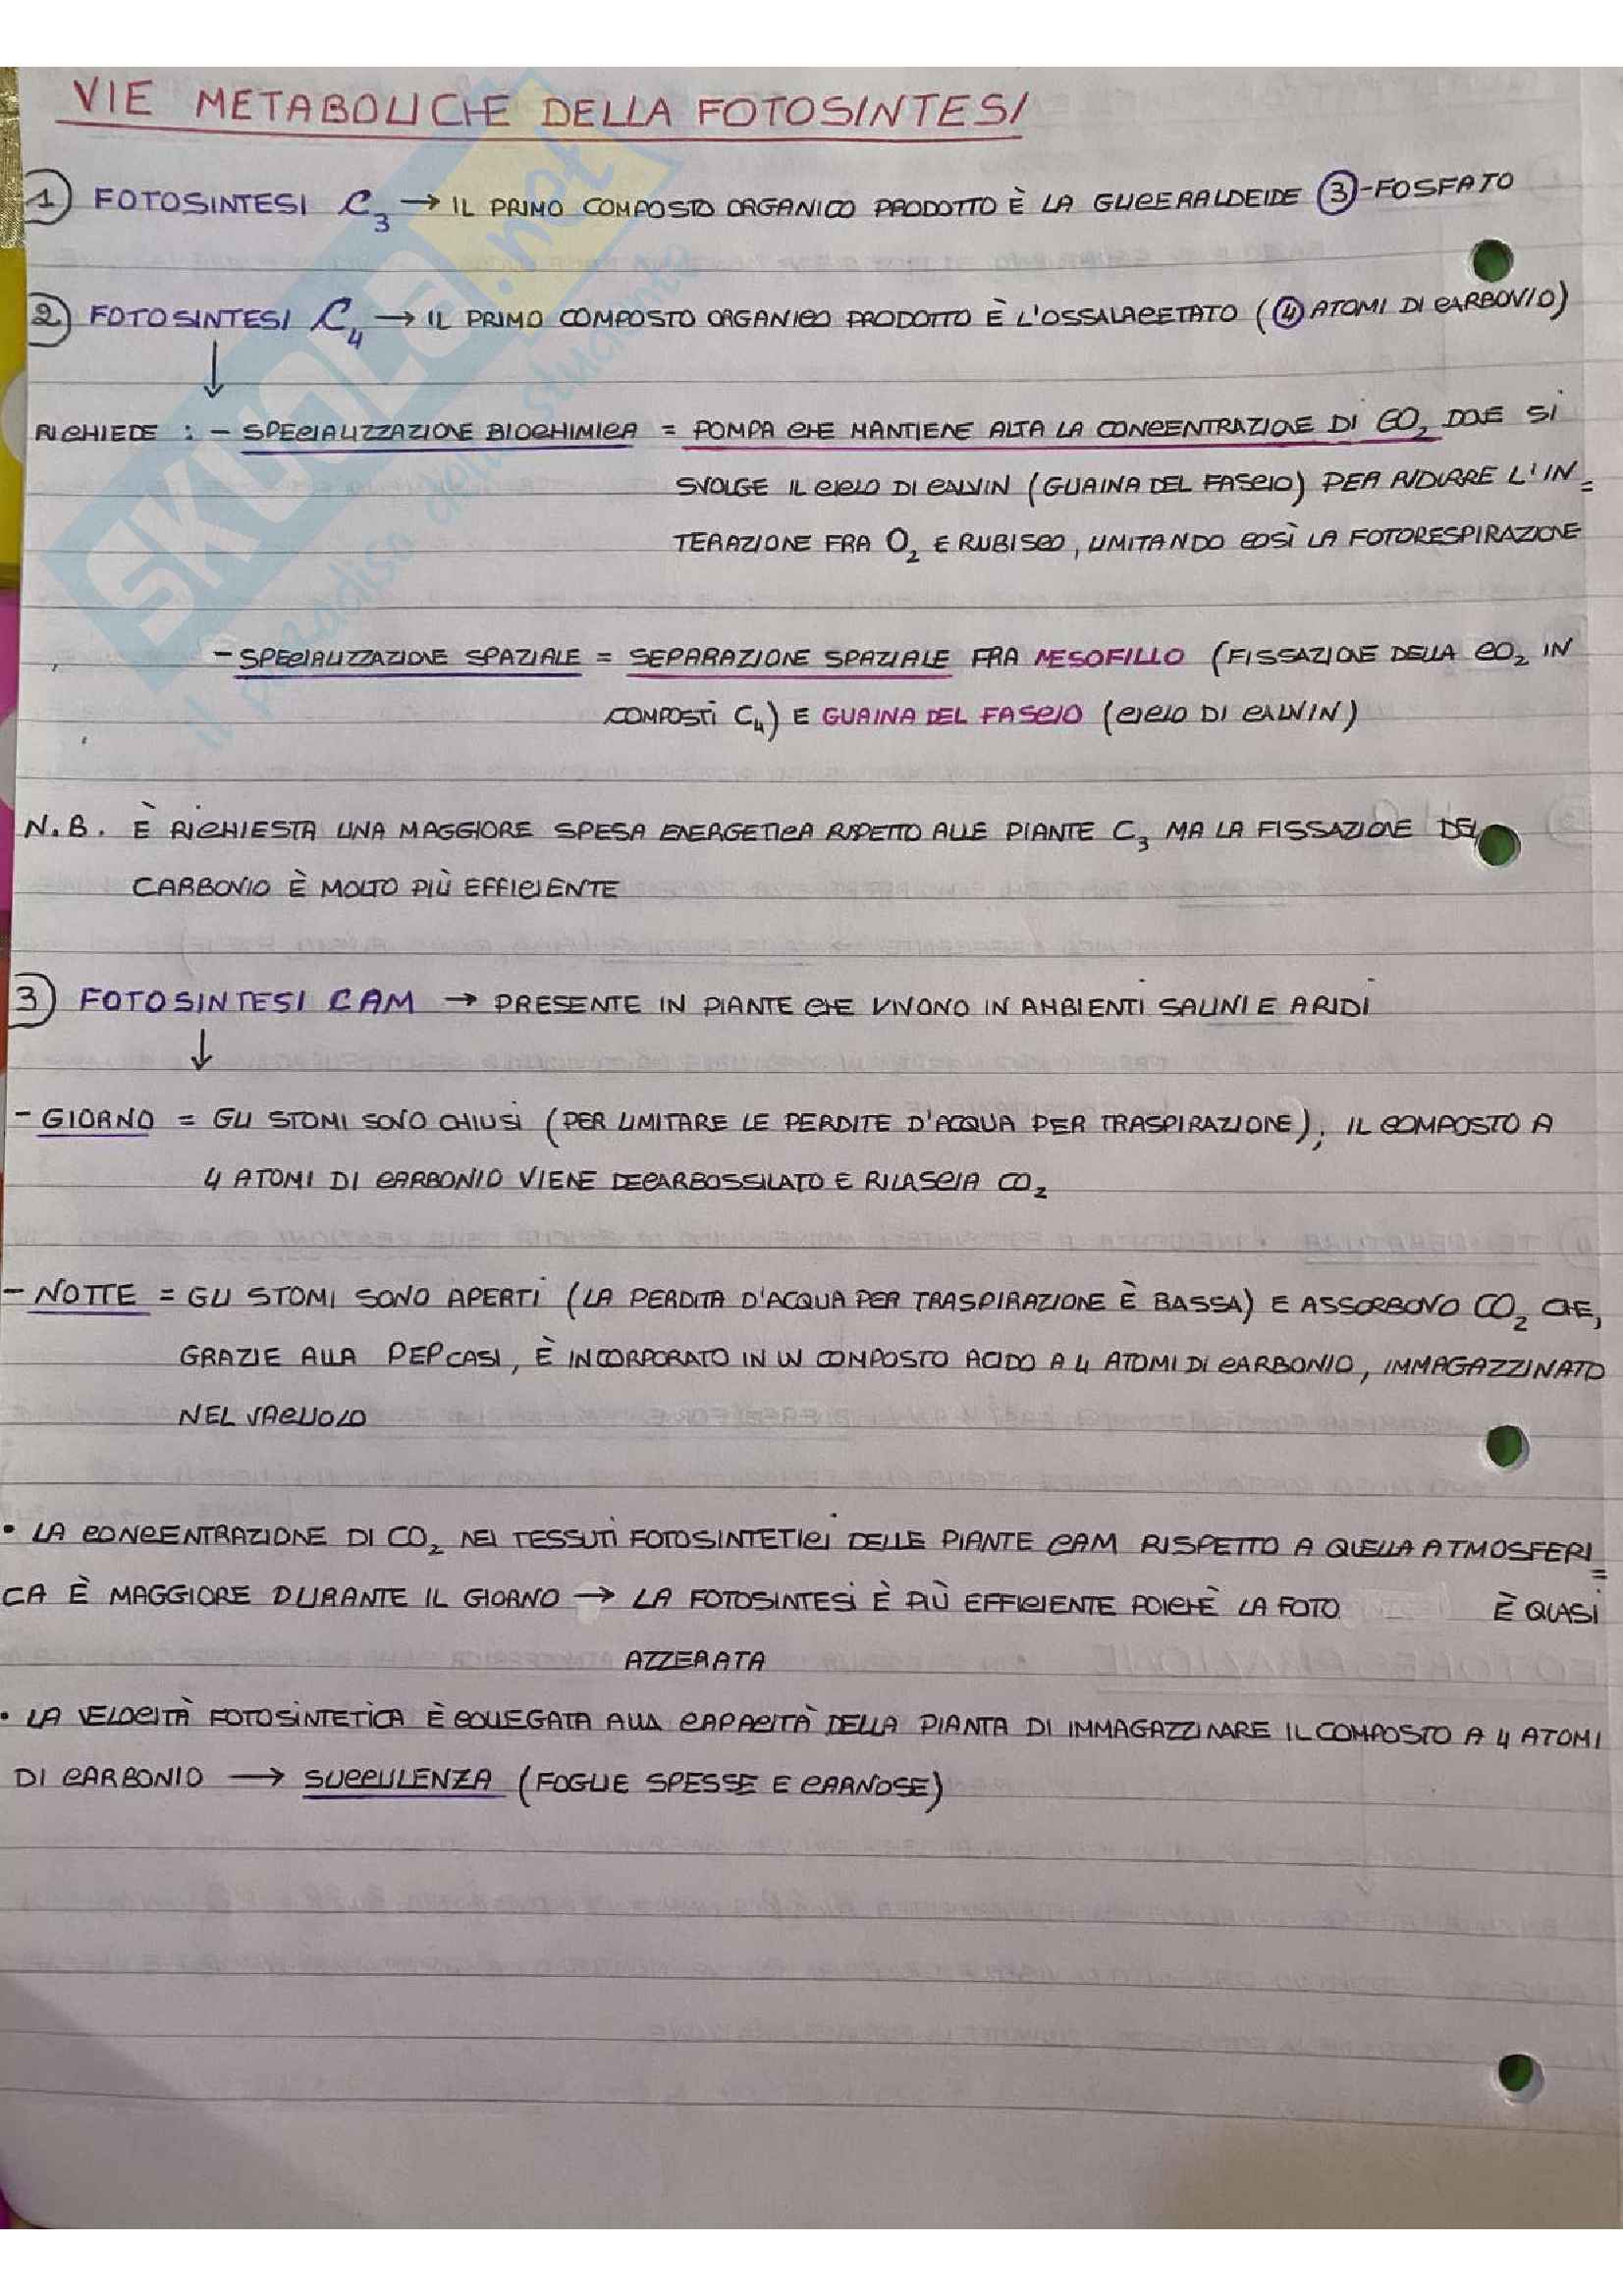 VIE METABOLICHE DELLA FOTOSINTESI
1 FOTOSINTESI C3 → IL PRIMO COMPOSTO ORGANICO PRODOTTO È LA GLICERALDEIDE 3-FOSFATO
2 FOTOSINTESI C4 → IL PRIMO COMPOSTO ORGANICO PRODOTTO È L'OSSALACETATO (4 ATOMI DI CARBONIO)
↓
RICHIEDE : - SPECIALIZZAZIONE BIOCHIMICA = POMPA CHE MANTIENE ALTA LA CONCENTRAZIONE DI CO2 DOVE SI
SVOLGE IL CICLO DI CALVIN (GUAINA DEL FASCIO) PER RIDURRE L'IN=
TERAZIONE FRA O2 E RUBISCO, LIMITANDO COSÌ LA FOTORESPIRAZIONE
- SPECIALIZZAZIONE SPAZIALE = SEPARAZIONE SPAZIALE FRA MESOFILLO (FISSAZIONE DELLA CO2 IN
COMPOSTI C4) E GUAINA DEL FASCIO (CICLO DI CALVIN)
N.B. È RICHIESTA UNA MAGGIORE SPESA ENERGETICA RISPETTO ALLE PIANTE C3 MA LA FISSAZIONE DEL
CARBONIO È MOLTO PIÙ EFFICIENTE
3) FOTOSINTESI CAM → PRESENTE IN PIANTE CHE VIVONO IN AMBIENTI SALINI E ARIDI
↓
- GIORNO = GLI STOMI SONO CHIUSI (PER LIMITARE LE PERDITE D'ACQUA PER TRASPIRAZIONE), IL COMPOSTO A
4 ATOMI DI CARBONIO VIENE DECARBOSSILATO E RILASCIA CO2
- NOTTE = GLI STOMI SONO APERTI (LA PERDITA D'ACQUA PER TRASPIRAZIONE È BASSA) E ASSORBONO CO2 CHE,
GRAZIE ALLA PEPCASI, È INCORPORATO IN UN COMPOSTO ACIDO A 4 ATOMI DI CARBONIO, IMMAGAZZINATO
NEL VACUOLO
• LA CONCENTRAZIONE DI CO2 NEI TESSUTI FOTOSINTETICI DELLE PIANTE CAM RISPETTO A QUELLA ATMOSFERI=
CA È MAGGIORE DURANTE IL GIORNO → LA FOTOSINTESI È PIÙ EFFICIENTE POICHÈ LA FOTO È QUASI
AZZERATA
• LA VELOCITÀ FOTOSINTETICA È COLLEGATA ALLA CAPACITÀ DELLA PIANTA DI IMMAGAZZINARE IL COMPOSTO A 4 ATOMI
DI CARBONIO → SUCCULENZA (FOGLIE SPESSE E CARNOSE)
SKUOLA.net
il paradiso dello studente